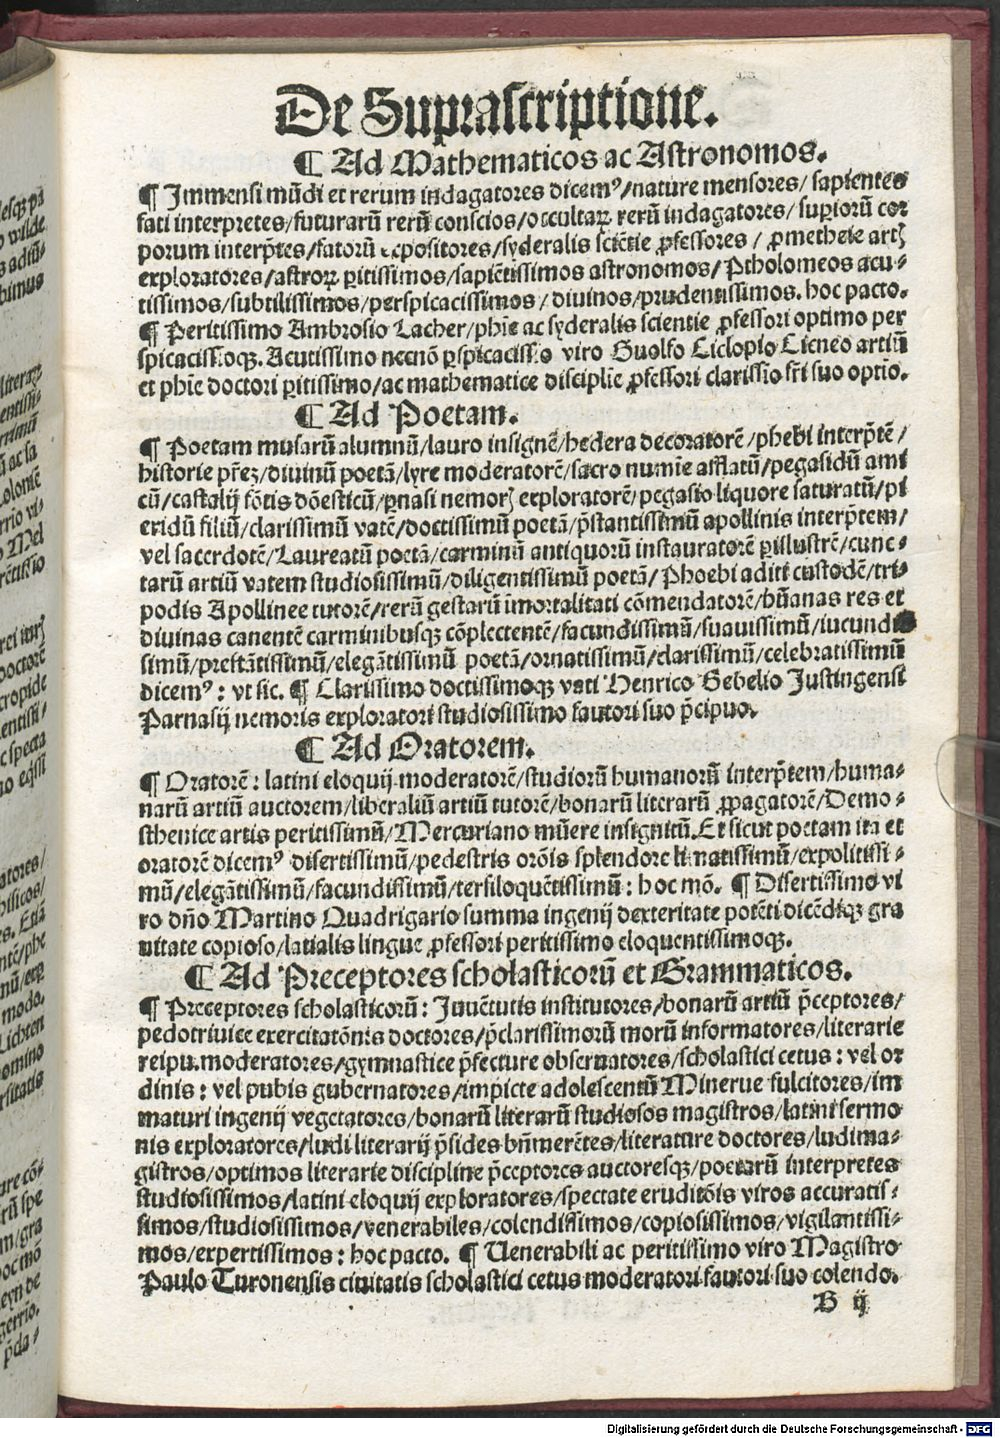 De Supraſcriptione.
¶ Ad Mathematicos ac Aſtronomos.
¶ Immenſi mūdi et rerum indagatores dicemꝰ/nature menſores/ ſapientes
fati interpretes/futurarū rerū conſcios/occultaꝝ rerū indagatores/ ſupioꝛū coꝛ
poꝛum interp̄tes/fatoꝛū expoſitoꝛes/ſyderalis ſciētie ꝓfeſſoꝛes / ꝓmetheie art
exploꝛatoꝛes/aſtroꝝ ꝑitiſſimos/ſapiētiſſimos aſtronomos/Ptholomeos acu⸗
tiſſimos/ſubtiliſſimos/perſpicaciſſimos/ diuinos/prudentiſſimos. hoc pacto.
¶ Peritiſſimo Ambroſio Lacher/phīe ac ſyderalis ſcientie ꝓfeſſoꝛi optimo per
ſpicaciſſ.oqꝫ. Acutiſſimo necnō ꝑſpicaciſſ̄o viro Guolfo Ciclopio Cicneo artiū
et phīe doctoꝛi ꝑitiſſimo/ac mathematice diſciplīe ꝓfeſſoꝛi clariſſīo fr̄i ſuo optīo.
¶ Ad Poetam.
¶ Poetam muſarū alumnū/lauro inſignē/hedera decoꝛatoꝛē/phebi interp̄tē/
hiſtoꝛie pr̄eꝫ/diuinū poetā/lyre moderatoꝛē/ſacro numīe afflatū/pegaſidū ami
cū/caſtalij fōtis dōeſticū/ꝑnaſi nemoꝛ exploꝛatoꝛē/pegaſio liquoꝛe ſaturatū/pi
eridū filiū/clariſſimū vatē/doctiſſimū poetā/p̄ſtantiſſimū apollinis interp̄tem/
vel ſacerdotē/Laureatū poetā/carminū antiquoꝛū inſtauratoꝛē ꝑilluſtrē/cunc⸗
tarū artiū vatem ſtudioſiſſimū/diligentiſſimū poetā/ Phoebi aditi cuſtodē/tri⸗
podis Apollinee tutoꝛē/rerū geſtarū īmoꝛtalitati cōmendatoꝛē/hūanas res et
diuinas canentē carminibuſqꝫ cōplectentē/facundiſſimū/ſuauiſſimū/iucundiſ
ſimū/preſtātiſſimū/elegātiſſimū poetā/oꝛnatiſſimū/clariſſimū/celebratiſſimū
dicemꝰ : vt ſic. ¶ Clariſſimo doctiſſimoqꝫ vati Henrico Bebelio Juſtingenſi
Parnaſij nemoꝛis exploꝛatoꝛi ſtudioſiſſimo fautoꝛi ſuo p̄cipuo.
¶ Ad Oꝛatoꝛem.
¶ Oꝛatoꝛē : latini eloquij moderatoꝛē/ſtudioꝛū humanoꝛū interp̄tem/huma⸗
narū artiū auctoꝛem/liberaliū artiū tutoꝛē/bonarū literarū ꝓpagatoꝛē/Demo⸗
ſthenice artis peritiſſimū/Mercuriano mūere inſignitū. Et ſicut poetam ita et
oꝛatoꝛē dicemꝰ diſertiſſimū/pedeſtris oꝛōis ſplendoꝛe limatiſſimū/expolitiſſi⸗
mū/elegātiſſimū/facundiſſimū/terſiloquētiſſimū : hoc mō. ¶ Diſertiſſimo vi
ro dn̄o Martino Quadrigario ſumma ingenij dexteritate potēti dicēdiqꝫ gra
uitate copioſo/latialis lingue ꝓfeſſoꝛi peritiſſimo eloquentiſſimoqꝫ.
¶ Ad Preceptoꝛes ſcholaſticoꝛū et Grammaticos.
¶ Preceptoꝛes ſcholaſticoꝛū : Juuētutis inſtitutoꝛes/bonarū artiū p̄ceptoꝛes/
pedotriuice exercitatōnis doctoꝛes/p̄clariſſimoꝛū moꝛū infoꝛmatoꝛes/literarie
reipu.moderatoꝛes/gymnaſtice p̄fecture obſeruatoꝛes/ſcholaſtici cetus : vel oꝛ
dinis : vel pubis gubernatoꝛes/impicte adoleſcentū Minerue fulcitoꝛes/im
maturi ingenij vegetatoꝛes/bonarū literarū ſtudioſos magiſtros/latini ſermo
nis exploꝛatoꝛes/ludi literarij p̄ſides bn̄merētes/literature doctoꝛes/ludima⸗
giſtros/optimos literarie diſcipline p̄ceptoꝛes auctoꝛeſqꝫ/poetarū interpretes
ſtudioſiſſimos/latini eloquij exploꝛatoꝛes/ſpectate eruditōis viros accuratiſ⸗
ſimos/ſtudioſiſſimos/venerabiles/colendiſſimos/copioſiſſimos/vigilantiſſi⸗
mos/expertiſſimos : hoc pacto. ¶ Venerabili ac peritiſſimo viro Magiſtro
Paulo Turonenſis ciuitatis ſcholaſtici cetus moderatoꝛi fautoꝛi ſuo colendo.
B ij
Digitalisierung gefördert durch die Deutsche Forschungsgemeinschaft - DFG